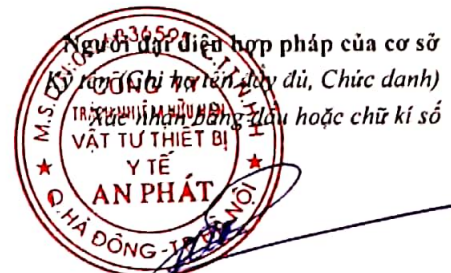 Người đại diện hợp pháp của cơ sở
Ký tên (Ghi họ tên đầy đủ, Chức danh)
Xác nhận bằng dấu hoặc chữ kí số
CÔNG TY
TRÁCH NHIỆM HỮU HẠN
VẬT TƯ THIẾT BỊ
Y TẾ
AN PHÁT
Q. HÀ ĐÔNG - TP HÀ NỘI